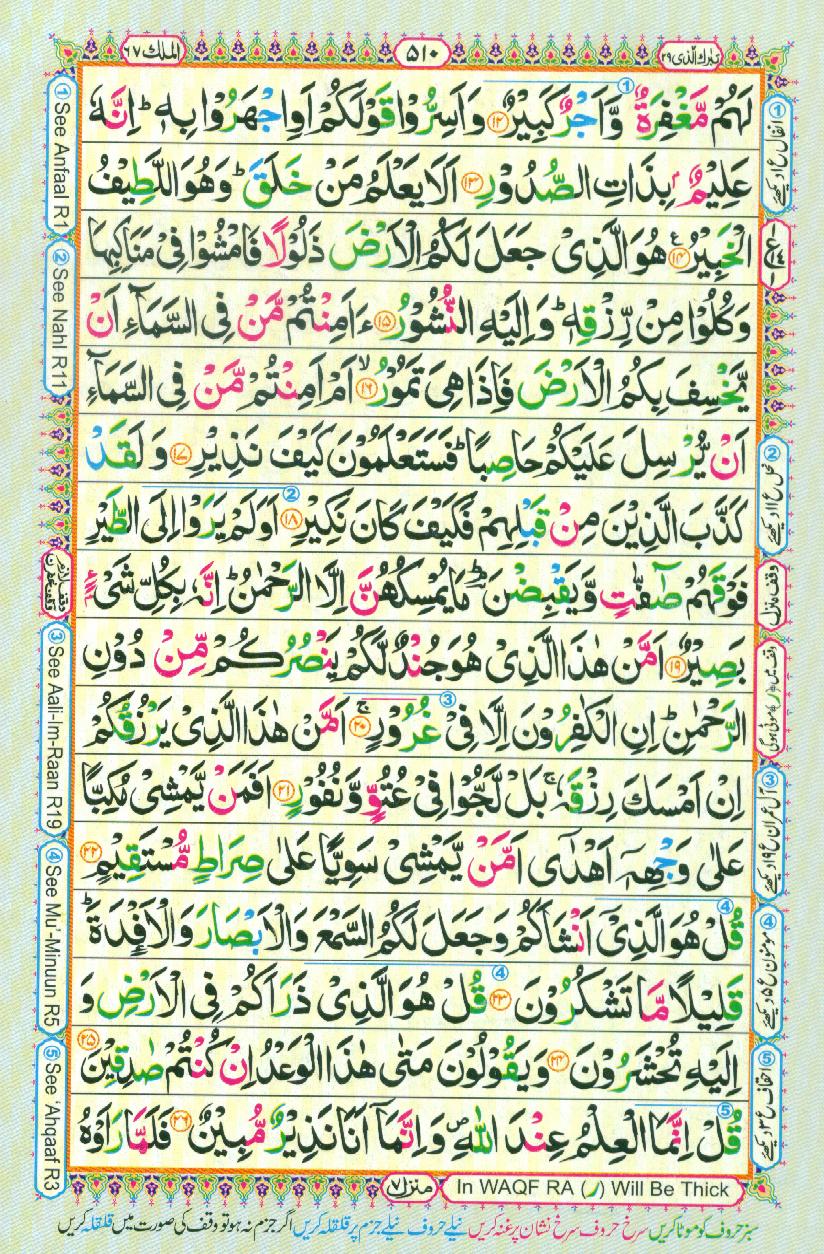 تبٰرك الذی ۲۹
۵۱۰
الملك ۶۷
لَهُمْ مَّغْفِرَةٌ وَّاَجْرٌ كَبِيْرٌ ﴿۱۲﴾ وَاَسِرُّوْا قَوْلَكُمْ اَوِ اجْهَرُوْا بِهٖ ؕ اِنَّهٗ
عَلِيْمٌۢ بِذَاتِ الصُّدُوْرِ ﴿۱۳﴾ اَلَا يَعْلَمُ مَنْ خَلَقَ ؕ وَهُوَ اللَّطِيْفُ
الْخَبِيْرُ ﴿۱۴﴾ هُوَ الَّذِيْ جَعَلَ لَكُمُ الْاَرْضَ ذَلُوْلًا فَامْشُوْا فِيْ مَنَاكِبِهَا
وَكُلُوْا مِنْ رِّزْقِهٖ ؕ وَاِلَيْهِ النُّشُوْرُ ﴿۱۵﴾ ءَاَمِنْتُمْ مَّنْ فِي السَّمَآءِ اَنْ
يَّخْسِفَ بِكُمُ الْاَرْضَ فَاِذَا هِيَ تَمُوْرُ ﴿۱۶﴾ اَمْ اَمِنْتُمْ مَّنْ فِي السَّمَآءِ
اَنْ يُّرْسِلَ عَلَيْكُمْ حَاصِبًا ؕ فَسَتَعْلَمُوْنَ كَيْفَ نَذِيْرِ ﴿۱۷﴾ وَلَقَدْ
كَذَّبَ الَّذِيْنَ مِنْ قَبْلِهِمْ فَكَيْفَ كَانَ نَكِيْرِ ﴿۱۸﴾ اَوَلَمْ يَرَوْا اِلَى الطَّيْرِ
فَوْقَهُمْ صٰٓفّٰتٍ وَّيَقْبِضْنَ ؕ مَا يُمْسِكُهُنَّ اِلَّا الرَّحْمٰنُ ؕ اِنَّهٗ بِكُلِّ شَيْءٍۢ
بَصِيْرٌ ﴿۱۹﴾ اَمَّنْ هٰذَا الَّذِيْ هُوَ جُنْدٌ لَّكُمْ يَنْصُرُكُمْ مِّنْ دُوْنِ
الرَّحْمٰنِ ؕ اِنِ الْكٰفِرُوْنَ اِلَّا فِيْ غُرُوْرٍ ﴿۲۰﴾ اَمَّنْ هٰذَا الَّذِيْ يَرْزُقُكُمْ
اِنْ اَمْسَكَ رِزْقَهٗ ۚ بَلْ لَّجُّوْا فِيْ عُتُوٍّ وَّنُفُوْرٍ ﴿۲۱﴾ اَفَمَنْ يَّمْشِيْ مُكِبًّا
عَلٰى وَجْهِهٖٓ اَهْدٰٓى اَمَّنْ يَّمْشِيْ سَوِيًّا عَلٰى صِرَاطٍ مُّسْتَقِيْمٍ ﴿۲۲﴾
قُلْ هُوَ الَّذِيْٓ اَنْشَاَكُمْ وَجَعَلَ لَكُمُ السَّمْعَ وَالْاَبْصَارَ وَالْاَفْـِٕدَةَ ؕ
قَلِيْلًا مَّا تَشْكُرُوْنَ ﴿۲۳﴾ قُلْ هُوَ الَّذِيْ ذَرَاَكُمْ فِي الْاَرْضِ وَ
اِلَيْهِ تُحْشَرُوْنَ ﴿۲۴﴾ وَيَقُوْلُوْنَ مَتٰى هٰذَا الْوَعْدُ اِنْ كُنْتُمْ صٰدِقِيْنَ ﴿۲۵﴾
قُلْ اِنَّمَا الْعِلْمُ عِنْدَ اللّٰهِ ۪ وَاِنَّمَآ اَنَا نَذِيْرٌ مُّبِيْنٌ ﴿۲۶﴾ فَلَمَّا رَاَوْهُ
① See Anfaal R1
② See Nahl R11
③ See Aali-Im-Raan R19
④ See Mu'-Minuun R5
⑤ See 'Ahqaaf R3
① انفال ع ۱ دیکھئے
② نحل ع ۱۱ دیکھئے
③ آل عمران ع ۱۹ دیکھئے
④ مومنون ع ۵ دیکھئے
⑤ احقاف ع ۳ دیکھئے
منزل ۷
In WAQF RA (ر) Will Be Thick
سبز حروف کو موٹا کریں سرخ حروف سرخ نشان پر غنہ کریں نیلے حروف نیلے جزم پر قلقلہ کریں اگر جزم نہ ہو تو وقف کی صورت میں قلقلہ کریں